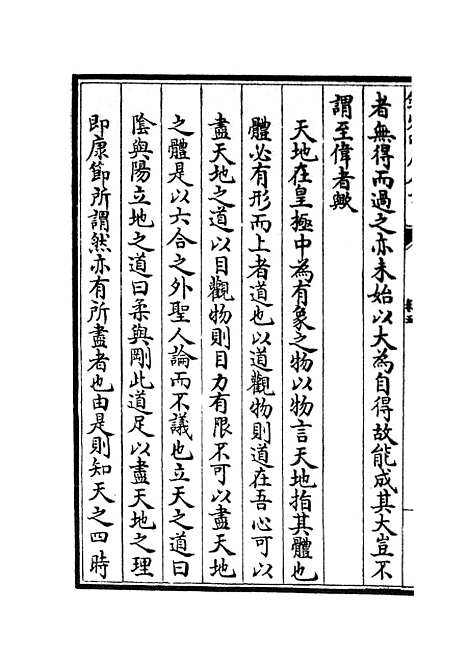 者無得而過之亦未始以大為自得故能成其大豈不
謂至偉者歟
天地在皇極中為有象之物以物言天地指其體也
體必有形而上者道也以道觀物則道在吾心可以
盡天地之道以目觀物則目力有限不可以盡天地
之體是以六合之外聖人論而不議也立天之道曰
陰與陽立地之道曰柔與剛此道足以盡天地之理
即康節所謂然亦有所盡者也由是則知天之四時